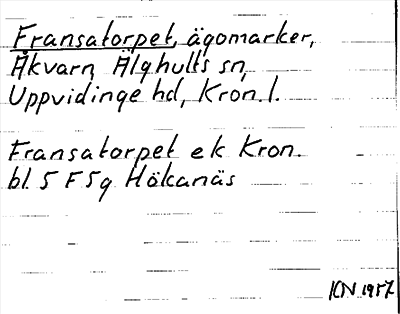 Fransatorpet, ägomarker,
Åkvarn, Älghults sn,
Uppvidinge hd, Kron. l.
Fransatorpet ek Kron.
bl. 5 F 5g Hökanäs
ICN 1957